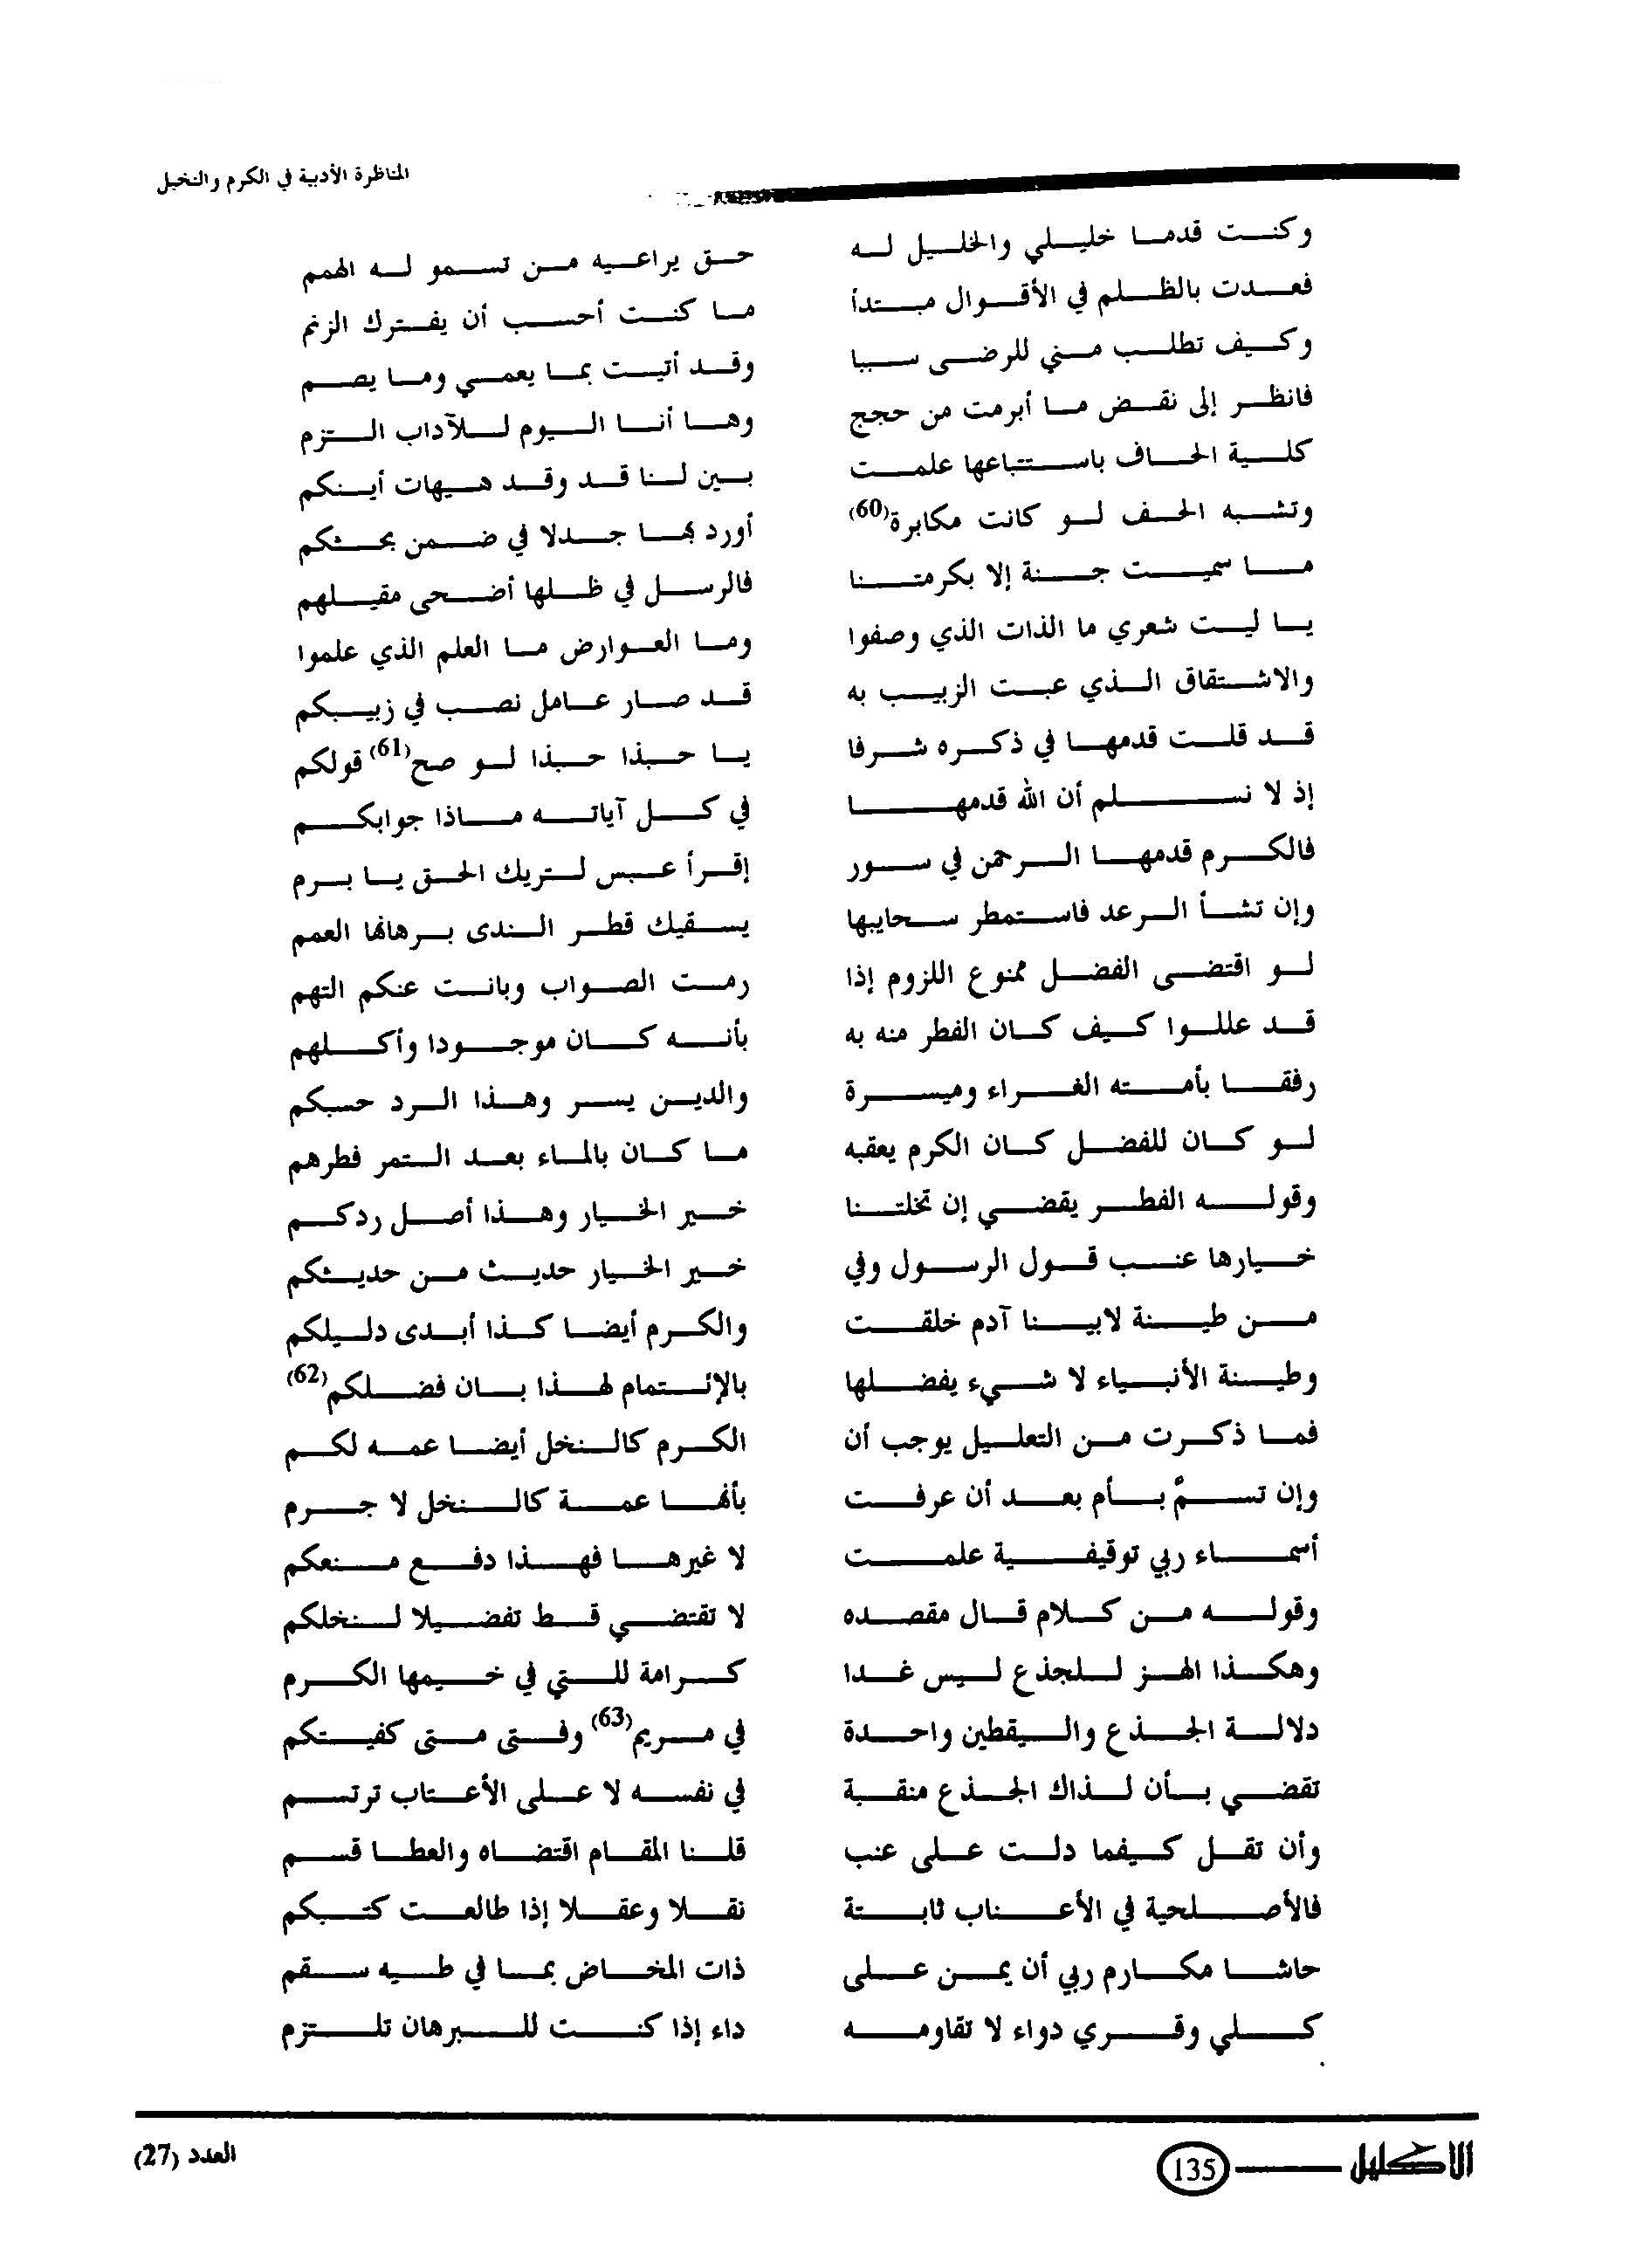 المناظرة الأدبية في الكرم والنخيل
وكنت قدما خليلي والخليل له حق يراعيه من تسمو له الهمم
فعدت بالظلم في الأقوال مبتدأ ما كنت أحسب أن يفترك الزنم
وكيف تطلب مني للرضى سببا وقد أتيت بما يعمي وما يصم
فانظر إلى نقض ما أبرمت من حجج وها أنا اليوم للآداب التزم
كلية الحاف باستتباعها علمت بين لنا قد وقد هيهات أينكم
وتشبه الحف لو كانت مكابرة(60) أورد بها جدلا في ضمن بحثكم
ما سميت جنة إلا بكرمتنا فالرسل في ظلها أضحى مقيلهم
يا ليت شعري ما الذات الذي وصفوا وما العوارض ما العلم الذي علموا
والاشتقاق الذي عبت الزبيب به قد صار عامل نصب في زبيبكم
قد قلت قدمها في ذكره شرفا يا حبذا حبذا لو صح(61) قولكم
إذ لا نسلم أن الله قدمها في كل آياته ماذا جوابكم
فالكرم قدمها الرحمن في سور إقرأ عبس لتريك الحق يا برم
وإن تشأ الرعد فاستمطر سحايبها يسقيك قطر الندى برهانها العمم
لو اقتضى الفضل ممنوع اللزوم إذا رمت الصواب وبانت عنكم التهم
قد عللوا كيف كان الفطر منه به بأنه كان موجودا وأكلهم
رفقا بأمته الغراء وميسرة والدين يسر وهذا الرد حسبكم
لو كان للفضل كان الكرم يعقبه ما كان بالماء بعد التمر فطرهم
وقوله الفطر يقضي إن نخلتنا خير الخيار وهذا أصل ردكم
خيارها عنب قول الرسول وفي خير الخيار حديث من حديثكم
من طينة لابينا آدم خلقت والكرم أيضا كذا أبدى دليلكم
وطينة الأنبياء لا شيء يفضلها بالإئتمام لهذا بان فضلكم(62)
فما ذكرت من التعليل يوجب أن الكرم كالنخل أيضا عمه لكم
وإن تسمّ بأم بعد أن عرفت بأنها عمة كالنخل لا جرم
أسماء ربي توقيفية علمت لا غيرها فهذا دفع منعكم
وقوله من كلام قال مقصده لا تقتضي قط تفضيلا لنخلكم
وهكذا الهز للجذع ليس غدا كرامة للتي في خيمها الكرم
دلالة الجذع واليقطين واحدة في مريم(63) وفتى متى كفيتكم
تقضي بأن لذاك الجذع منقبة في نفسه لا على الأعتاب ترتسم
وأن تقل كيفما دلت على عنب قلنا المقام اقتضاه والعطا قسم
فالأصلحية في الأعناب ثابتة نقلا وعقلا إذا طالعت كتبكم
حاشا مكارم ربي أن يمن على ذات المخاض بما في طيه سقم
كلي وقري دواء لا تقاومه داء إذا كنت للبرهان تلتزم
الاكليل 135 العدد (27)